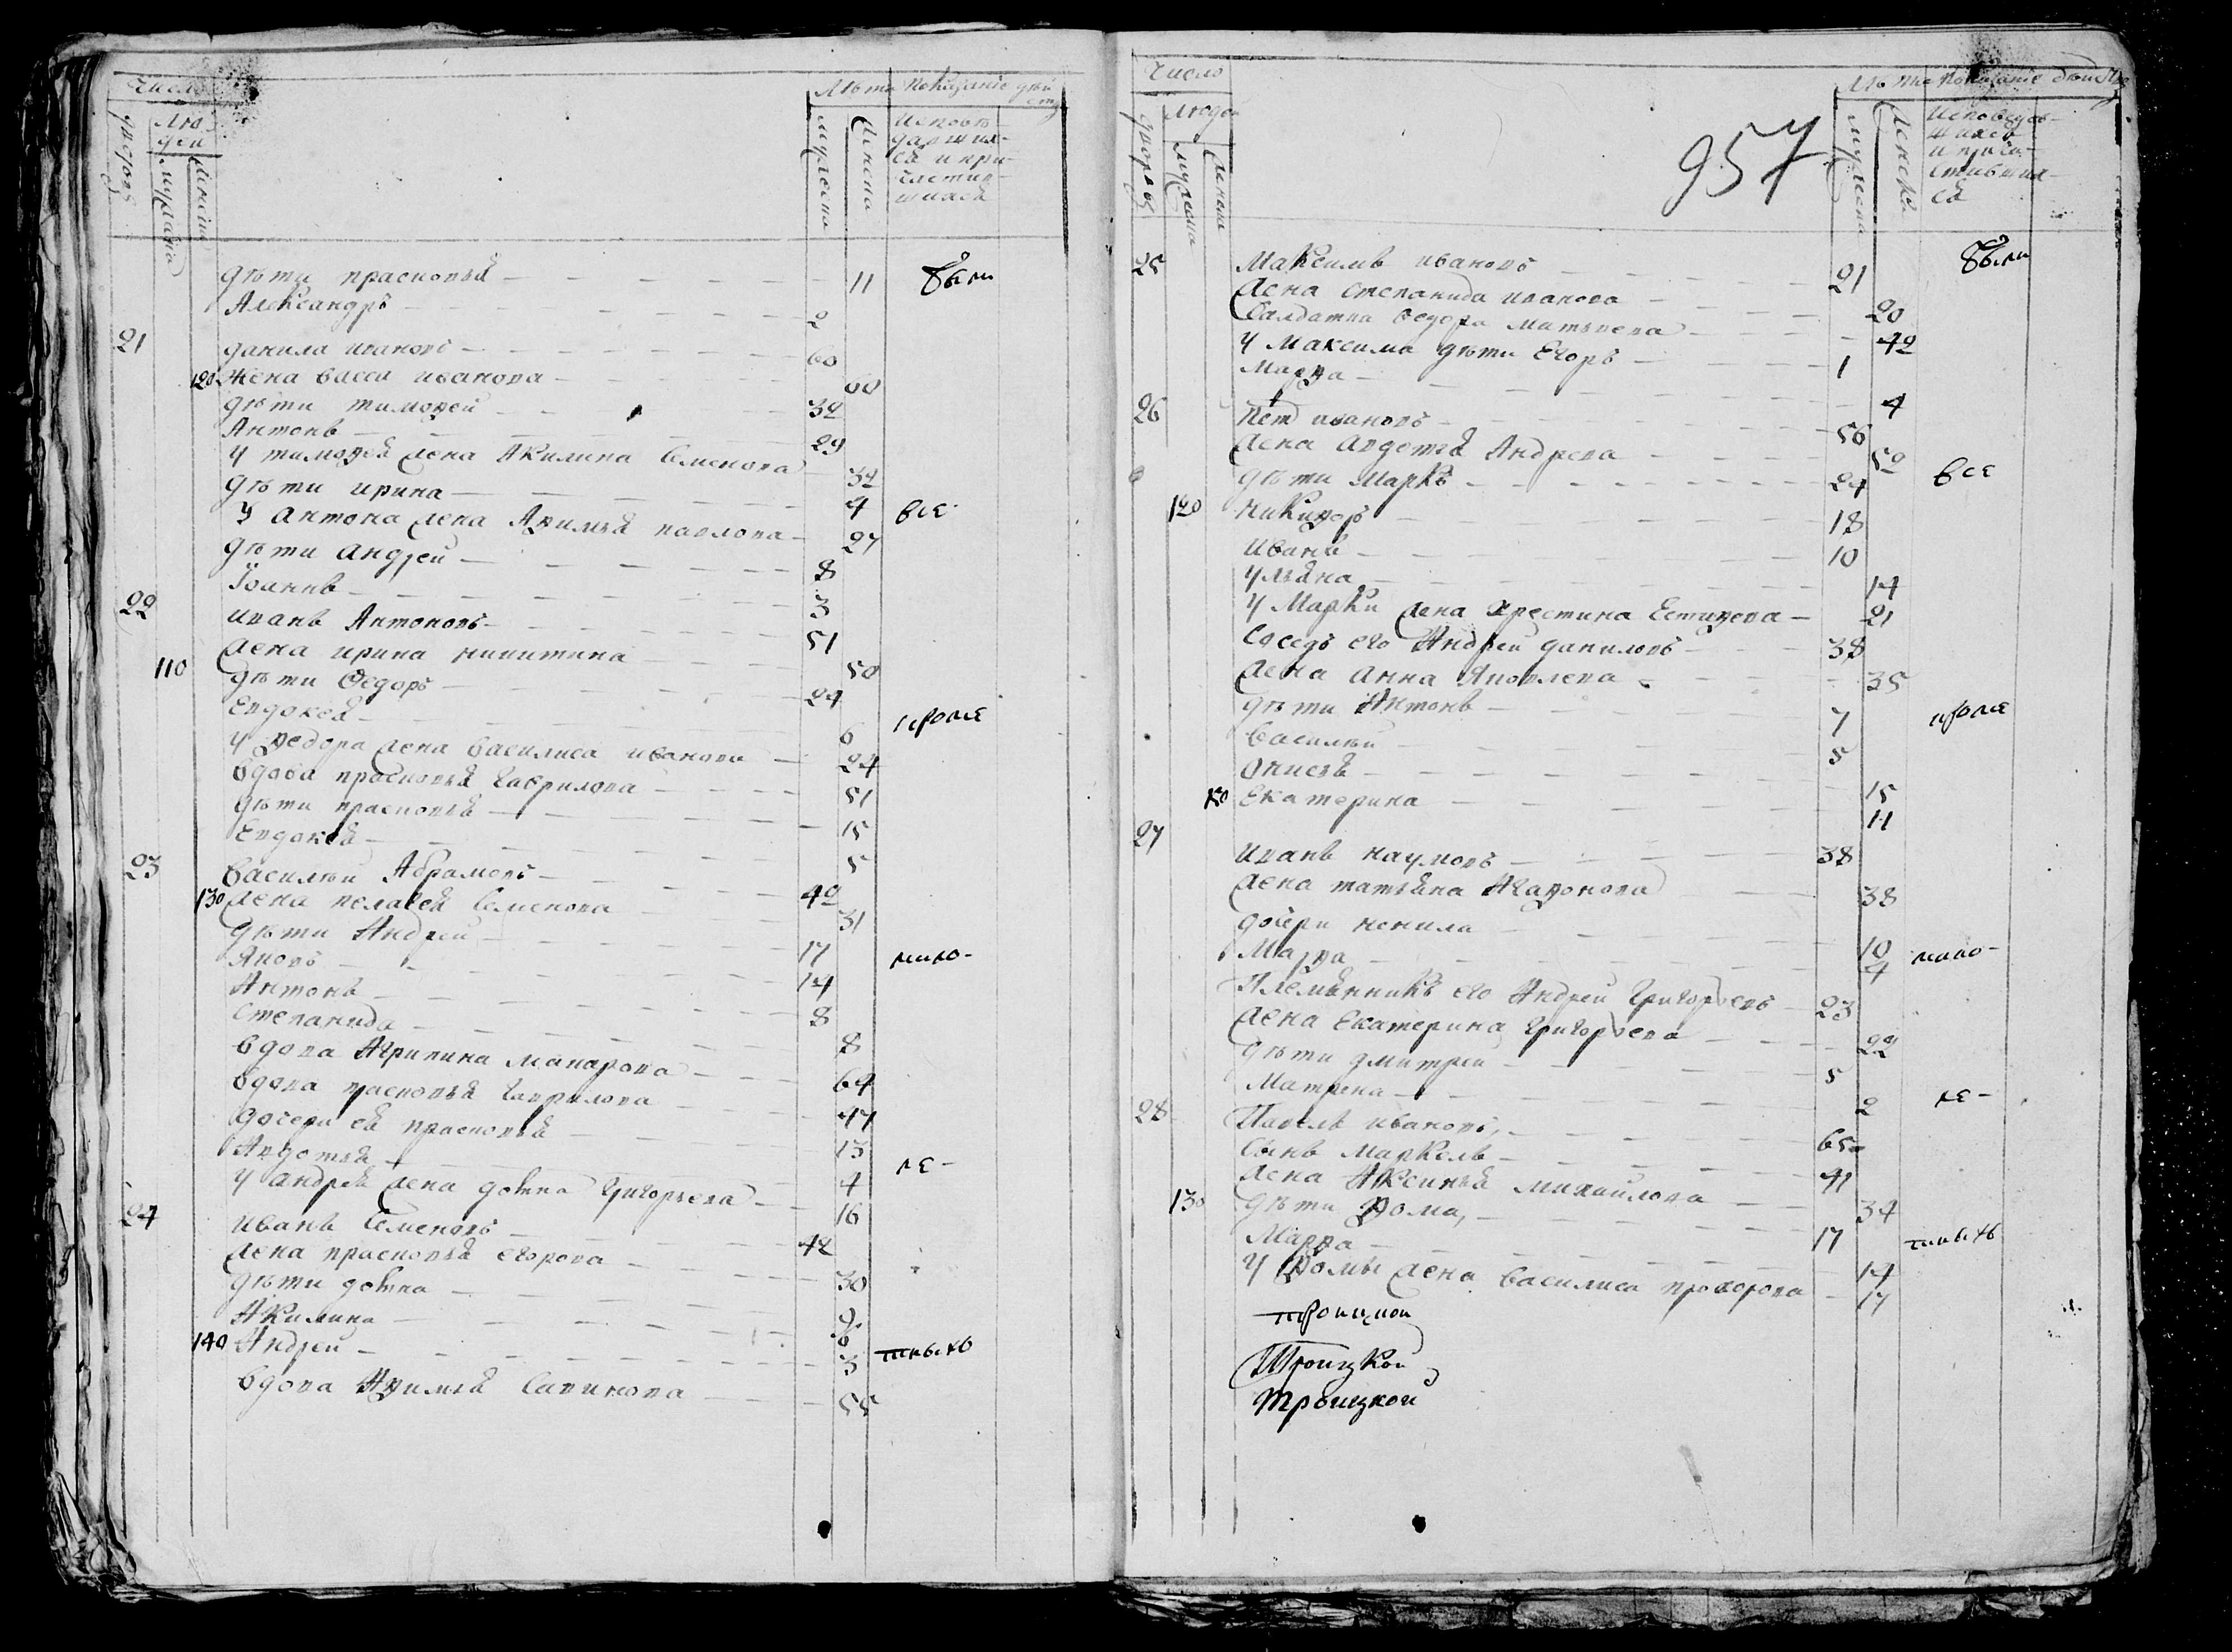 Число
Лѣта Показаніе дѣйств
дворовъ
Людей
мужеска
женска
мужеска
женска
Исповѣдавшихся и причастившихся
дѣти прасковья 11 были
Александръ 2
21 данила ивановъ 60
120 Жена васса иванова 60
дѣти тимофей 32
Антонъ 29
У тимофея жена Акилина Семенова 32
дѣти ирина 4 все
У антона жена Афимья павлова 27
дѣти андрей 8
Іоаннъ 3
22 иванъ Антоновъ 51
жена ирина никитина 50
110 дѣти Ѳедоръ 24
Евдокея 6 кроме
У федора жена василиса иванова 24
вдова прасковья гаврилова 51
дѣти прасковья 15
Евдокея 5
23 василѣи Абрамовъ 42
130 жена пелагея Семенова 31
дѣти Андреи 17
Яковъ 14 мало-
Антонъ 8
Степанида 8
вдова Агрипина макарова 64
вдова прасковья гаврилова 47
дочери ея прасковья 13
Авдотья 4 ле-
У андрея жена домна григорьева 16
24 иванъ Семеновъ 42
жена прасковья егорова 30
дѣти домна 9
Акилина 6
140 Андреи 3 тныхъ
вдова Афимья Савинова 55
Число
Лѣта Показаніе дѣйства
дворовъ
Людей
мужеска
женска
мужеска
женска
Исповедовшихся и причастившихся
957
25 Максимъ ивановъ 21 были
жена степанида иванова 20
Салдатка Ѳедора матвеева 42
У максима дѣти Егоръ 1
Марфа 4
26 Петръ ивановъ 56
жена авдотья Андреева 52
дѣти Марко 24 все
120 никифоръ 18
иванъ 10
Ульяна 14
У Марки жена Хрестина Естифеева 21
Соседъ его Андреи даниловъ 38
жена анна яковлева 35
дѣти Антонъ 7 кроме
василѣи 5
Анисья 15
150 Екатерина 11
27 иванъ наумовъ 38
жена татьяна Агафонова 38
дочери ненила 10
Марфа 4 мало-
Племянникъ его Андреи григорьевъ 23
жена Екатерина григорьева 22
дѣти дмитреи 5
Матрена 2 ле-
28 Павелъ ивановъ, 65
Сынъ маркелъ 41
жена Аксинья михайлова 34
130 дѣти Фома, 17
Марфа 14 тныхъ
У Фомы жена василиса прохорова 17
троицкои
Троицкои
Троицкой